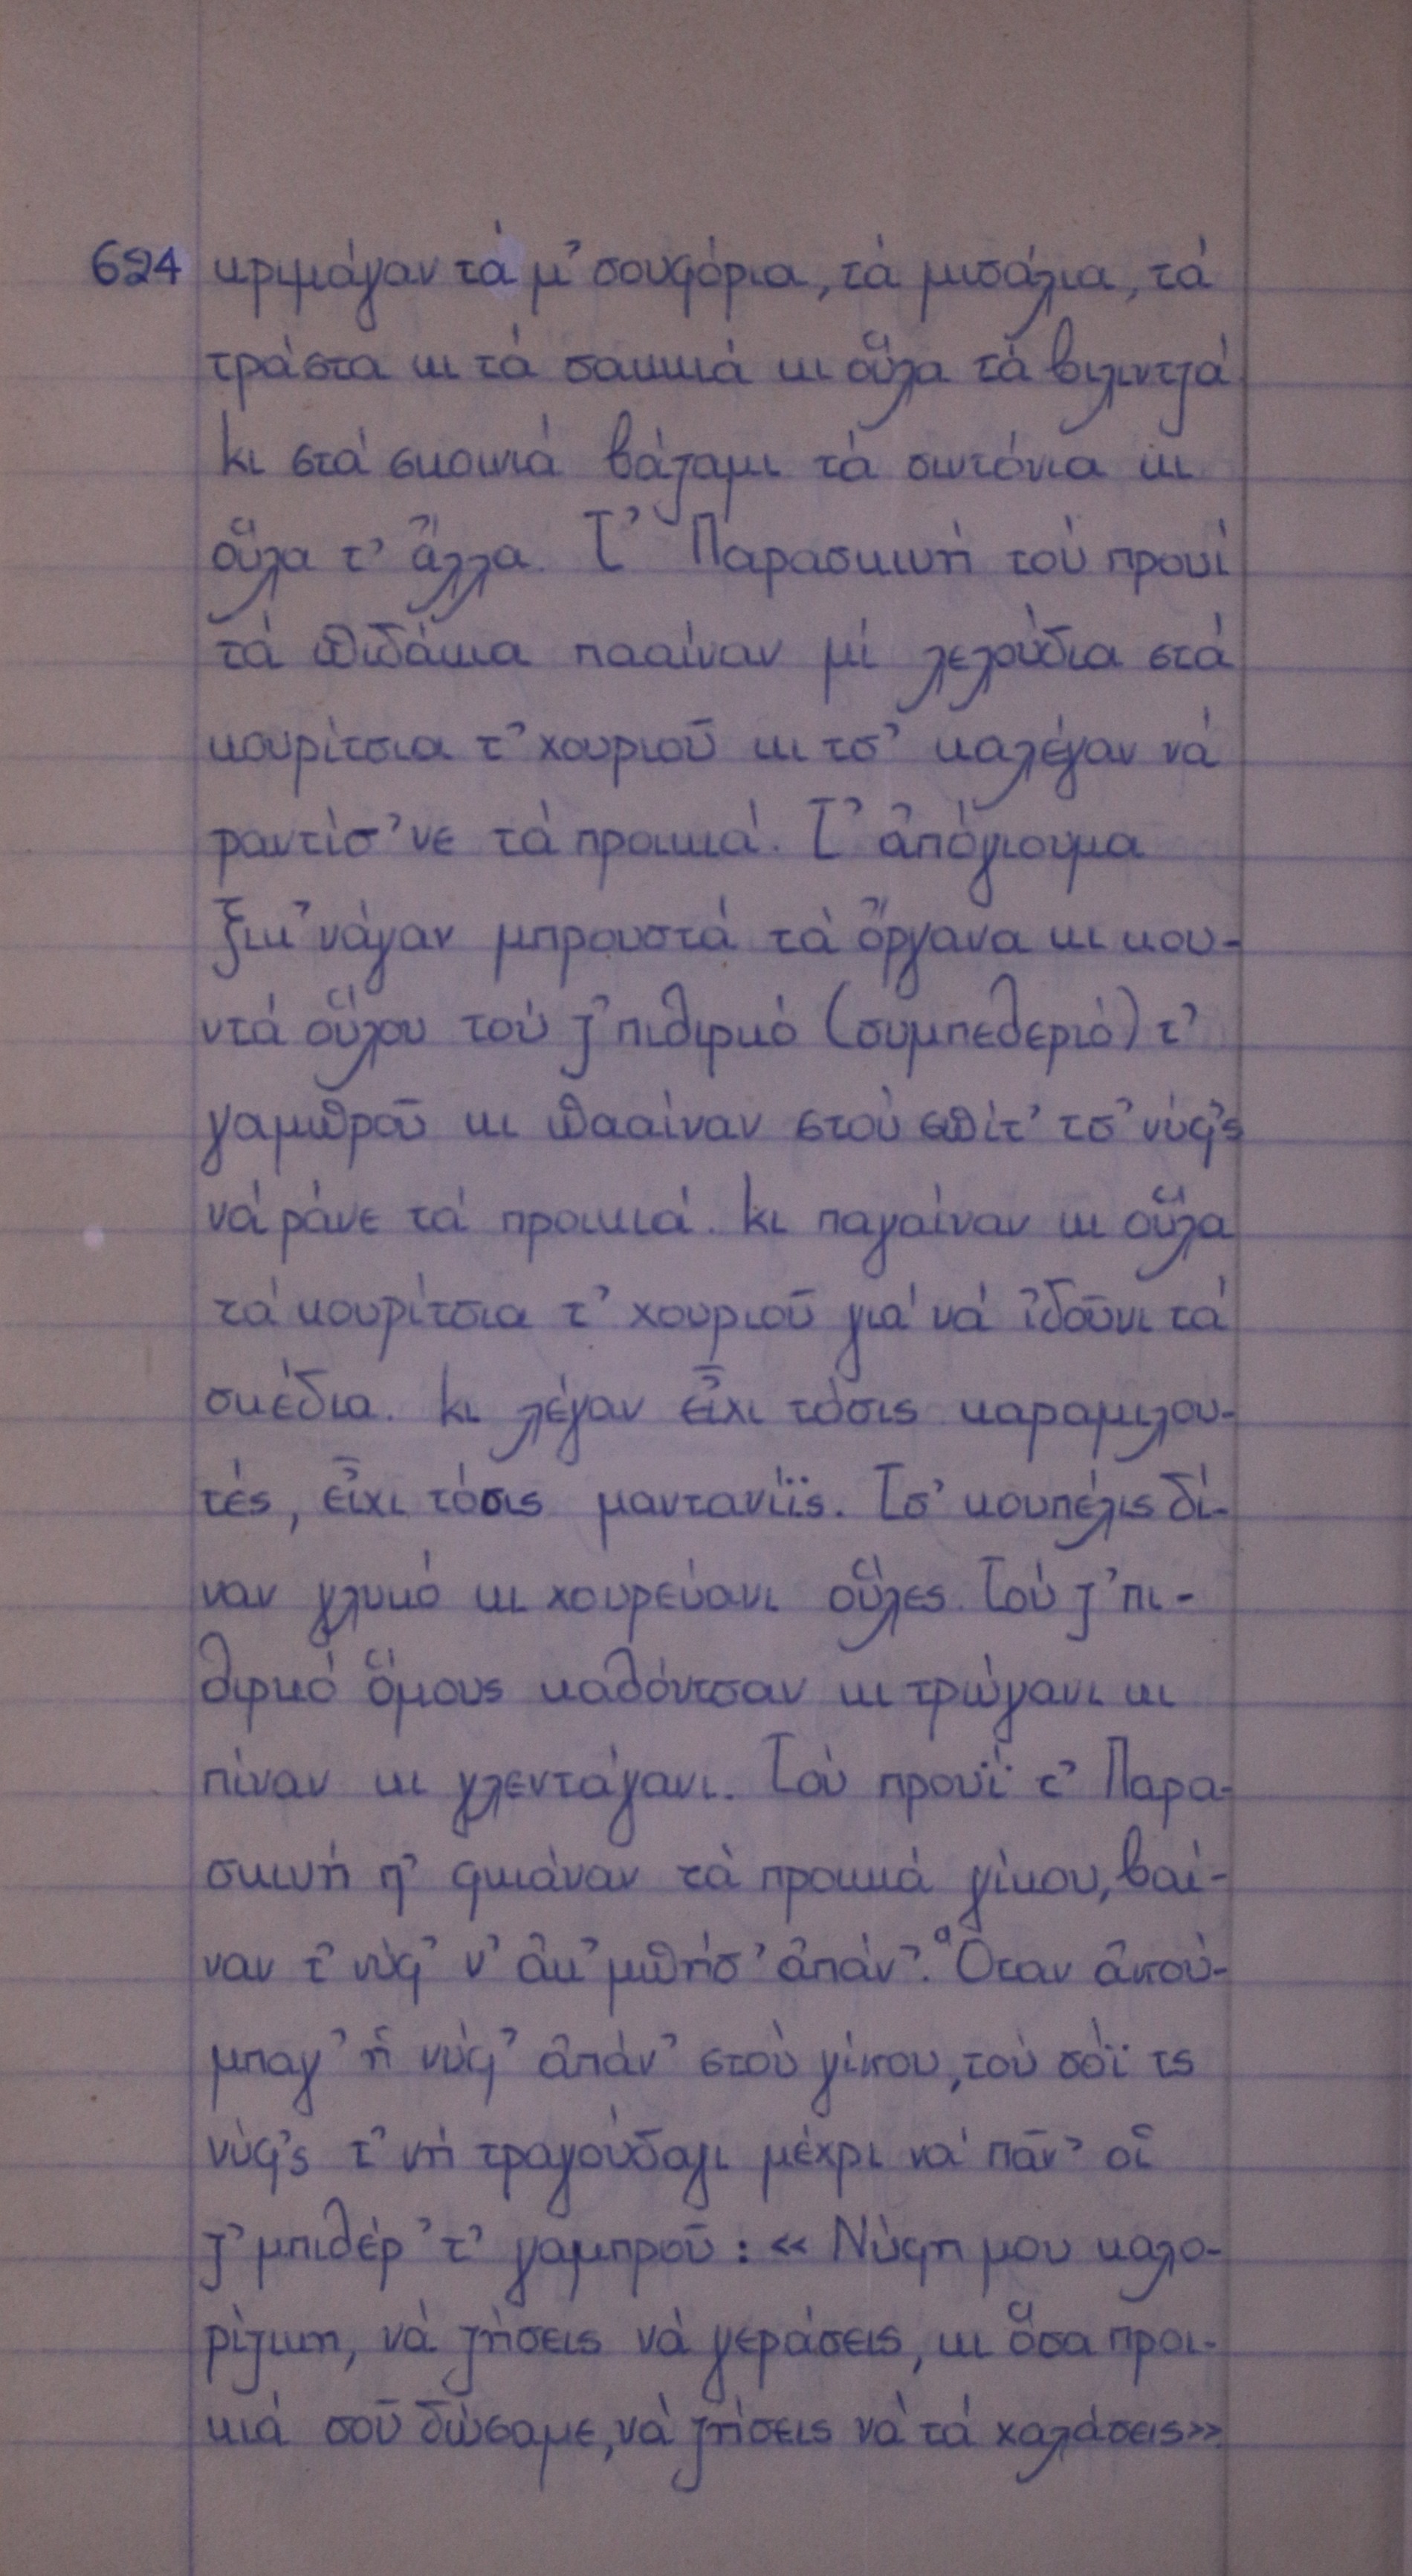 624 κριμάγαν τὰ μ᾿σουφόρια, τὰ μισάλια, τὰ
τράστα κι τὰ σακκιά κι οὕλα τὰ βιλιντζά
κι στὰ σκοινιά βάζαμι τὰ σιντόνια κι
οὕλα τ᾿ ἄλλα. Τ᾿ Παρασκιυή τοὺ προυί
τὰ πιδάκια πααίναν μὶ λελούδια στὰ
κουρίτσια τ᾿ χουριοῦ κι τσ᾿ καλέγαν νὰ
ραντίσ᾿νε τὰ προικιά. Τ᾿ ἀπόγιουμα
ξικ᾿νάγαν μπρουστά τὰ ὄργανα κι κου-
ντά οὕλου τοὺ ζ᾿πιθιρκό (συμπεθεριό) τ᾿
γαμπροῦ κι πααίναν στοὺ σπίτ᾿ τσ᾿ νύφ᾿ς
νὰ ράνε τὰ προικιά. Κι παγαίναν κι οὕλα
τὰ κουρίτσια τ᾿ χουριοῦ γιὰ νὰ ἰδοῦνι τὰ
σκέδια. Κι λέγαν εἶχι τόσις καραμιλου-
τές, εἶχι τόσις μαντανίϊς. Τσ᾿ κουπέλις δί-
ναν γλυκό κι χουρεύανι οὕλες. Τοὺ ζ᾿πι-
θιρκό ὅμους καθόντσαν κι τρώγανι κι
πίναν κι γλεντάγανι. Τοὺ προυΐ τ᾿ Παρα-
σκιυή π᾿ φκιάναν τὰ προικιά γίκου, βαί-
ναν τ᾿ νύφ᾿ ν᾿ ἀκ᾿μπήσ᾿ ἀπάν᾿. Ὅταν ἀκού-
μπαγ᾿ ἡ νύφ᾿ ἀπάν᾿ στοὺ γίκου, τοὺ σόϊ τς
νύφ᾿ς τ᾿ νὴ τραγούδαγι μέχρι νὰ πᾶν᾿ οἱ
ζ᾿μπιθέρ᾿ τ᾿ γαμπροῦ : «Νύφη μου καλο-
ρίζικη, νὰ ζήσεις νὰ γεράσεις, κι ὅσα προι-
κιά σοῦ δώσαμε, νὰ ζήσεις νὰ τὰ χαλάσεις»